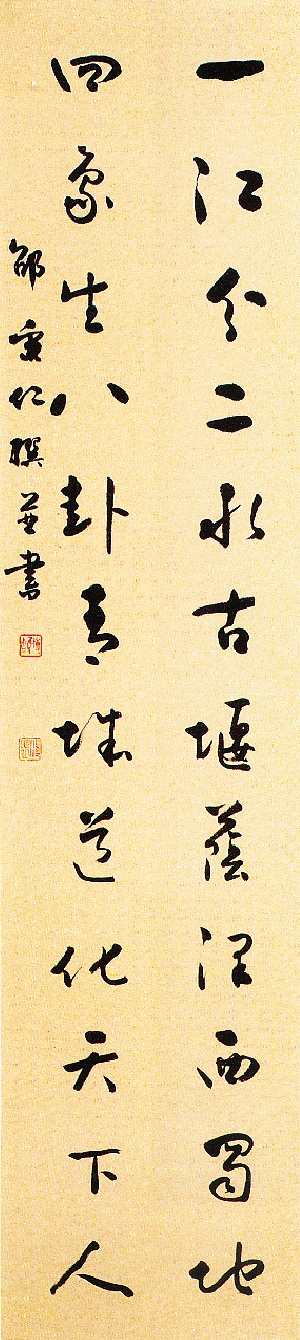 一江分二水古堰蔭澤西蜀地
四象生八卦青城道化天下人
邵重仁撰並書